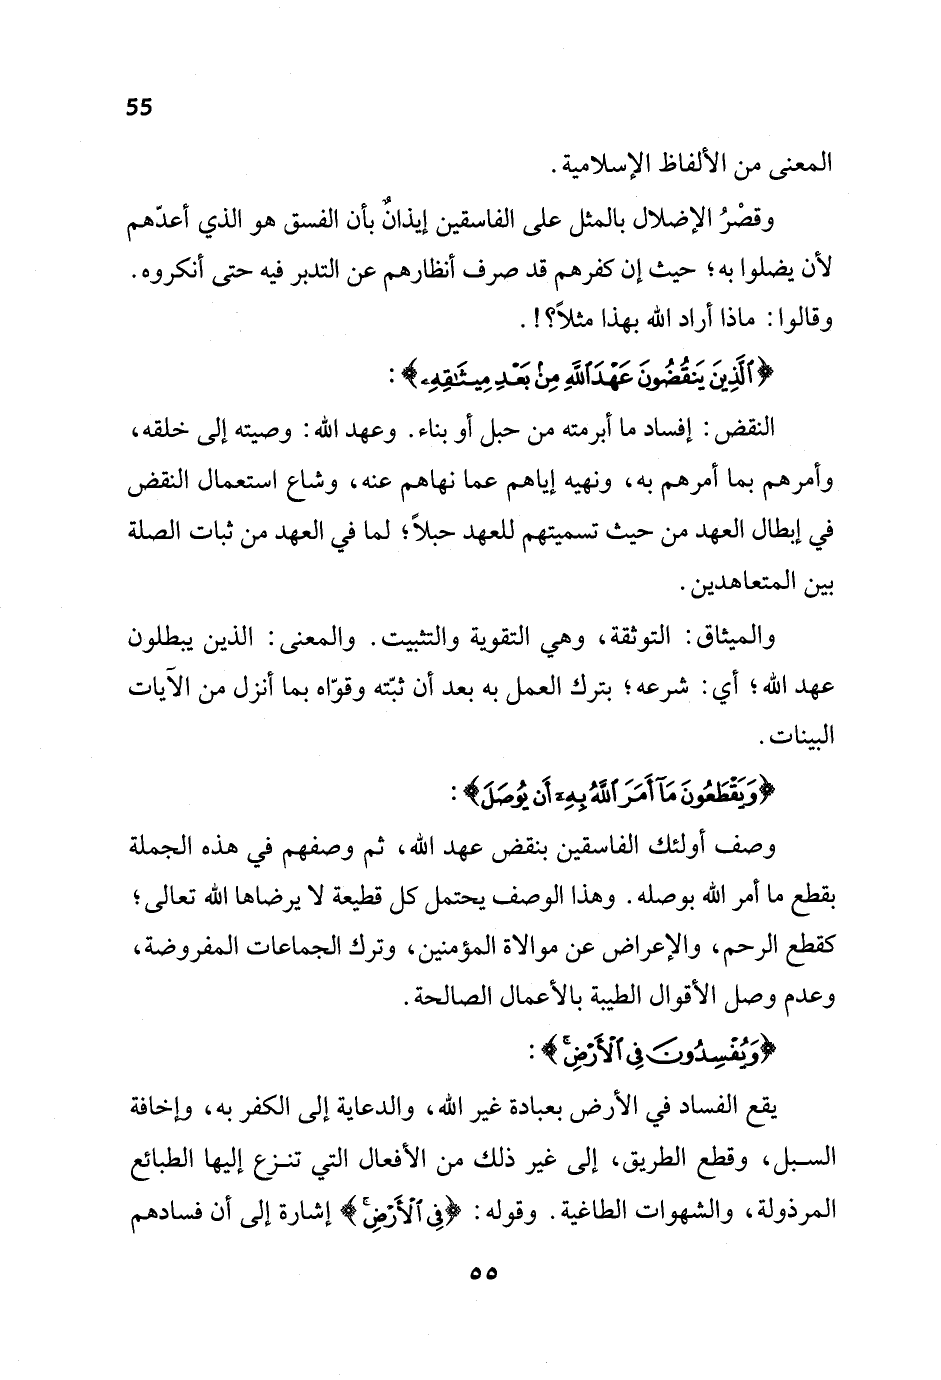 55
المعنى من الألفاظ الإسلامية.
وقصْرُ الإضلال بالمثل على الفاسقين إيذانٌ بأن الفسق هو الذي أعدّهم
لأن يضلوا به؛ حيث إن كفرهم قد صرف أنظارهم عن التدبر فيه حتى أنكروه.
وقالوا: ماذا أراد الله بهذا مثلاً؟!.
﴿ٱلَّذِينَ يَنقُضُونَ عَهۡدَ ٱللَّهِ مِنۢ بَعۡدِ مِيثَٰقِهِۦ﴾:
النقض: إفساد ما أبرمته من حبل أو بناء. وعهد الله: وصيته إلى خلقه،
وأمرهم بما أمرهم به، ونهيه إياهم عما نهاهم عنه، وشاع استعمال النقض
في إبطال العهد من حيث تسميتهم للعهد حبلاً؛ لما في العهد من ثبات الصلة
بين المتعاهدين.
والميثاق: التوثقة، وهي التقوية والتثبيت. والمعنى: الذين يبطلون
عهد الله؛ أي: شرعه؛ بترك العمل به بعد أن ثبّته وقوّاه بما أنزل من الآيات
البينات.
﴿وَيَقۡطَعُونَ مَآ أَمَرَ ٱللَّهُ بِهِۦٓ أَن يُوصَلَ﴾:
وصف أولئك الفاسقين بنقض عهد الله، ثم وصفهم في هذه الجملة
بقطع ما أمر الله بوصله. وهذا الوصف يحتمل كل قطيعة لا يرضاها الله تعالى؛
كقطع الرحم، والإعراض عن موالاة المؤمنين، وترك الجماعات المفروضة،
وعدم وصل الأقوال الطيبة بالأعمال الصالحة.
﴿وَيُفۡسِدُونَ فِي ٱلۡأَرۡضِۚ﴾:
يقع الفساد في الأرض بعبادة غير الله، والدعاية إلى الكفر به، وإخافة
السبل، وقطع الطريق، إلى غير ذلك من الأفعال التي تنـزع إليها الطبائع
المرذولة، والشهوات الطاغية. وقوله: ﴿فِي ٱلۡأَرۡضِۚ﴾ إشارة إلى أن فسادهم
٥٥